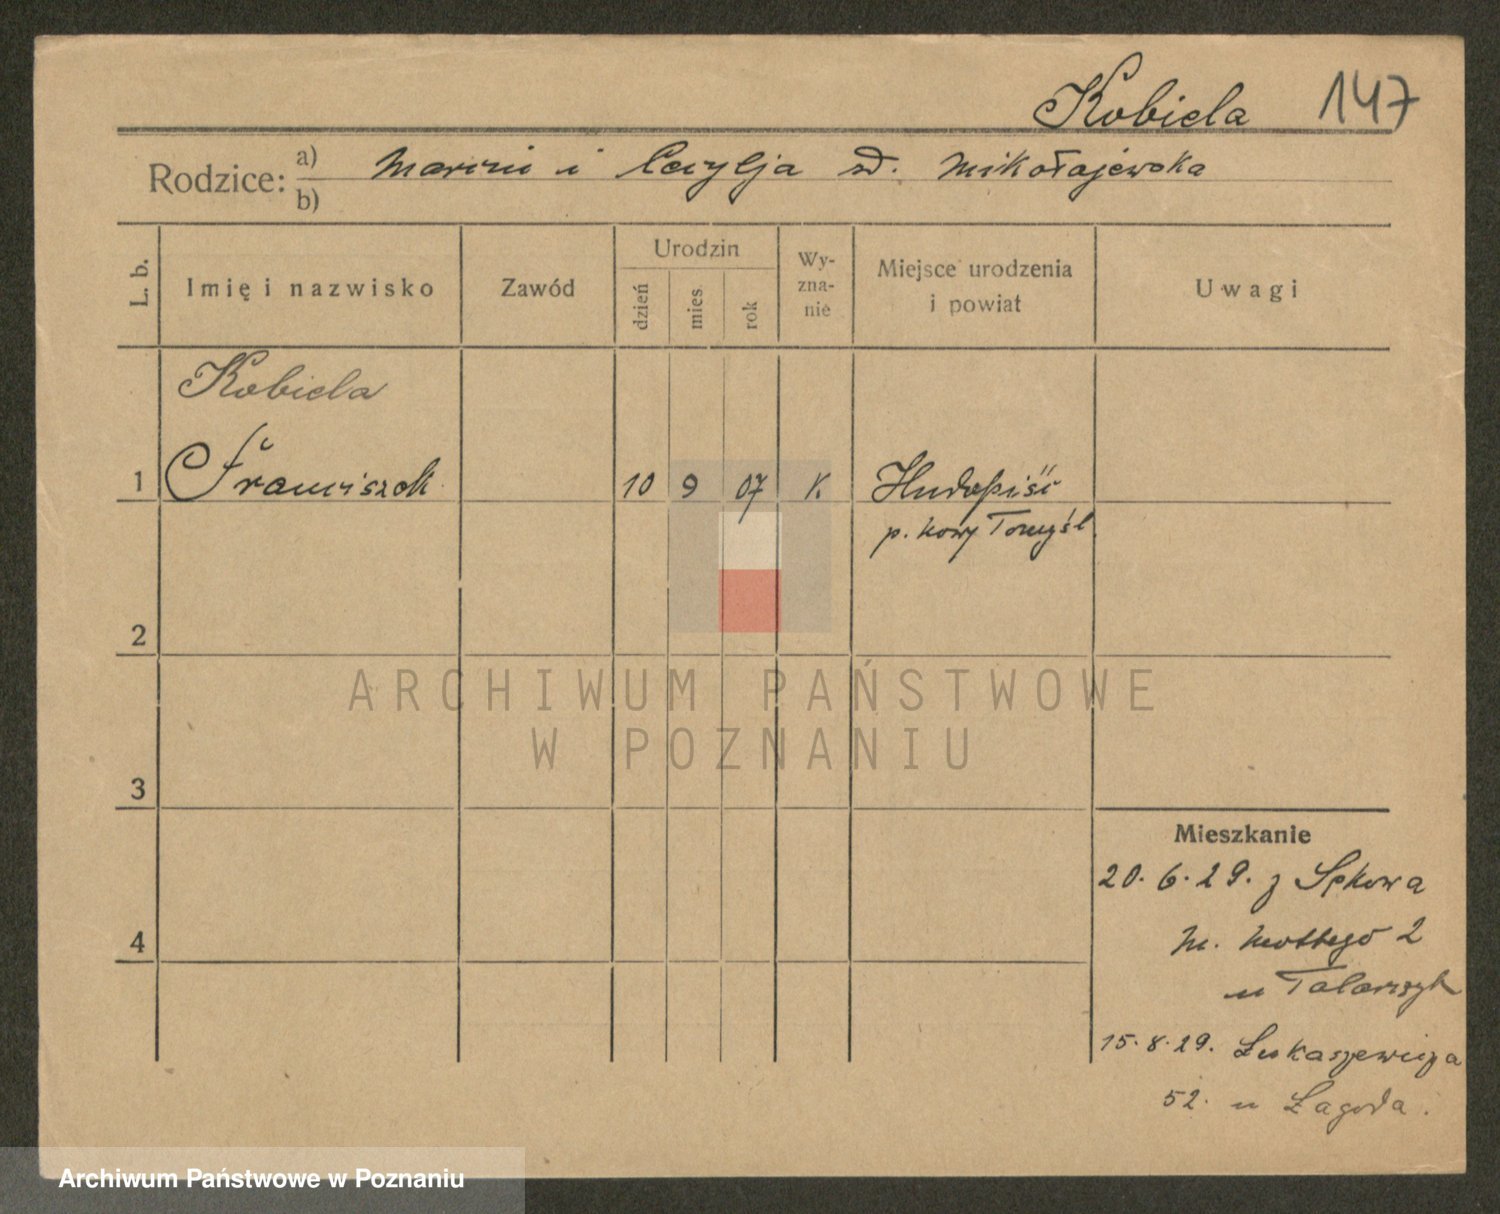 Kobiela 147
Rodzice: a) Marcin i Cecylja sd. Mikołajewska
b)
L. b. Imię i nazwisko Zawód Urodzin dzień mies. rok Wy-zna-nie Miejsce urodzenia i powiat Uwagi
Kobiela
1 Franciszek 10 9 07 K
p. Nowy Tomyśl
2
ARCHIWUM PAŃSTWOWE
W POZNANIU
3
Mieszkanie
20.6.29. z
4
M. Mottego 2
u Talarczyk
15.8.29. Łukaszewicza
52. u Łagoda.
Archiwum Państwowe w Poznaniu